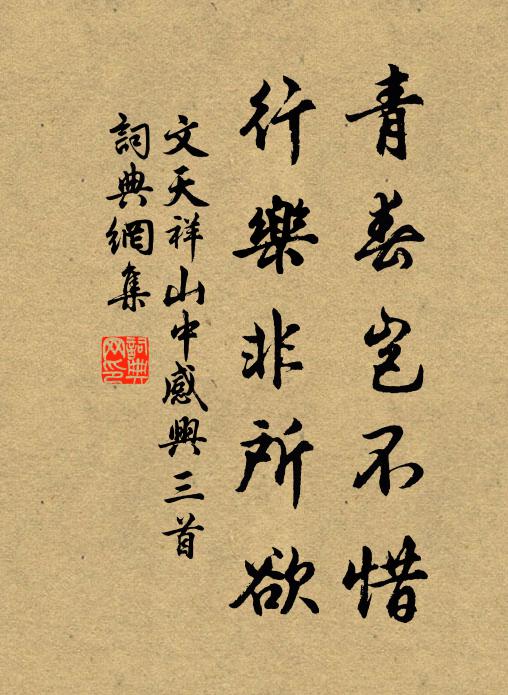 青春岂不惜
行樂非所欲
文天祥山中感興三首
詞典網集
詞典网印